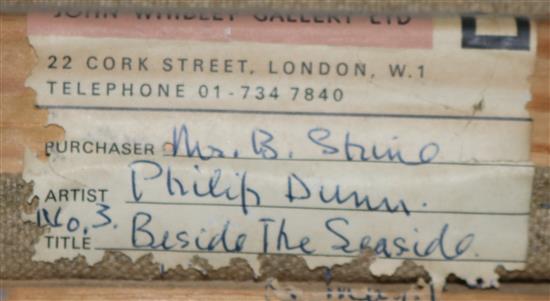 JOHN WHIBLEY GALLERY LTD
22 CORK STREET, LONDON, W.1
TELEPHONE 01-734 7840
PURCHASER Mr. B. Strine
ARTIST Philip Dunn.
No. 3.
TITLE Beside The Seaside.